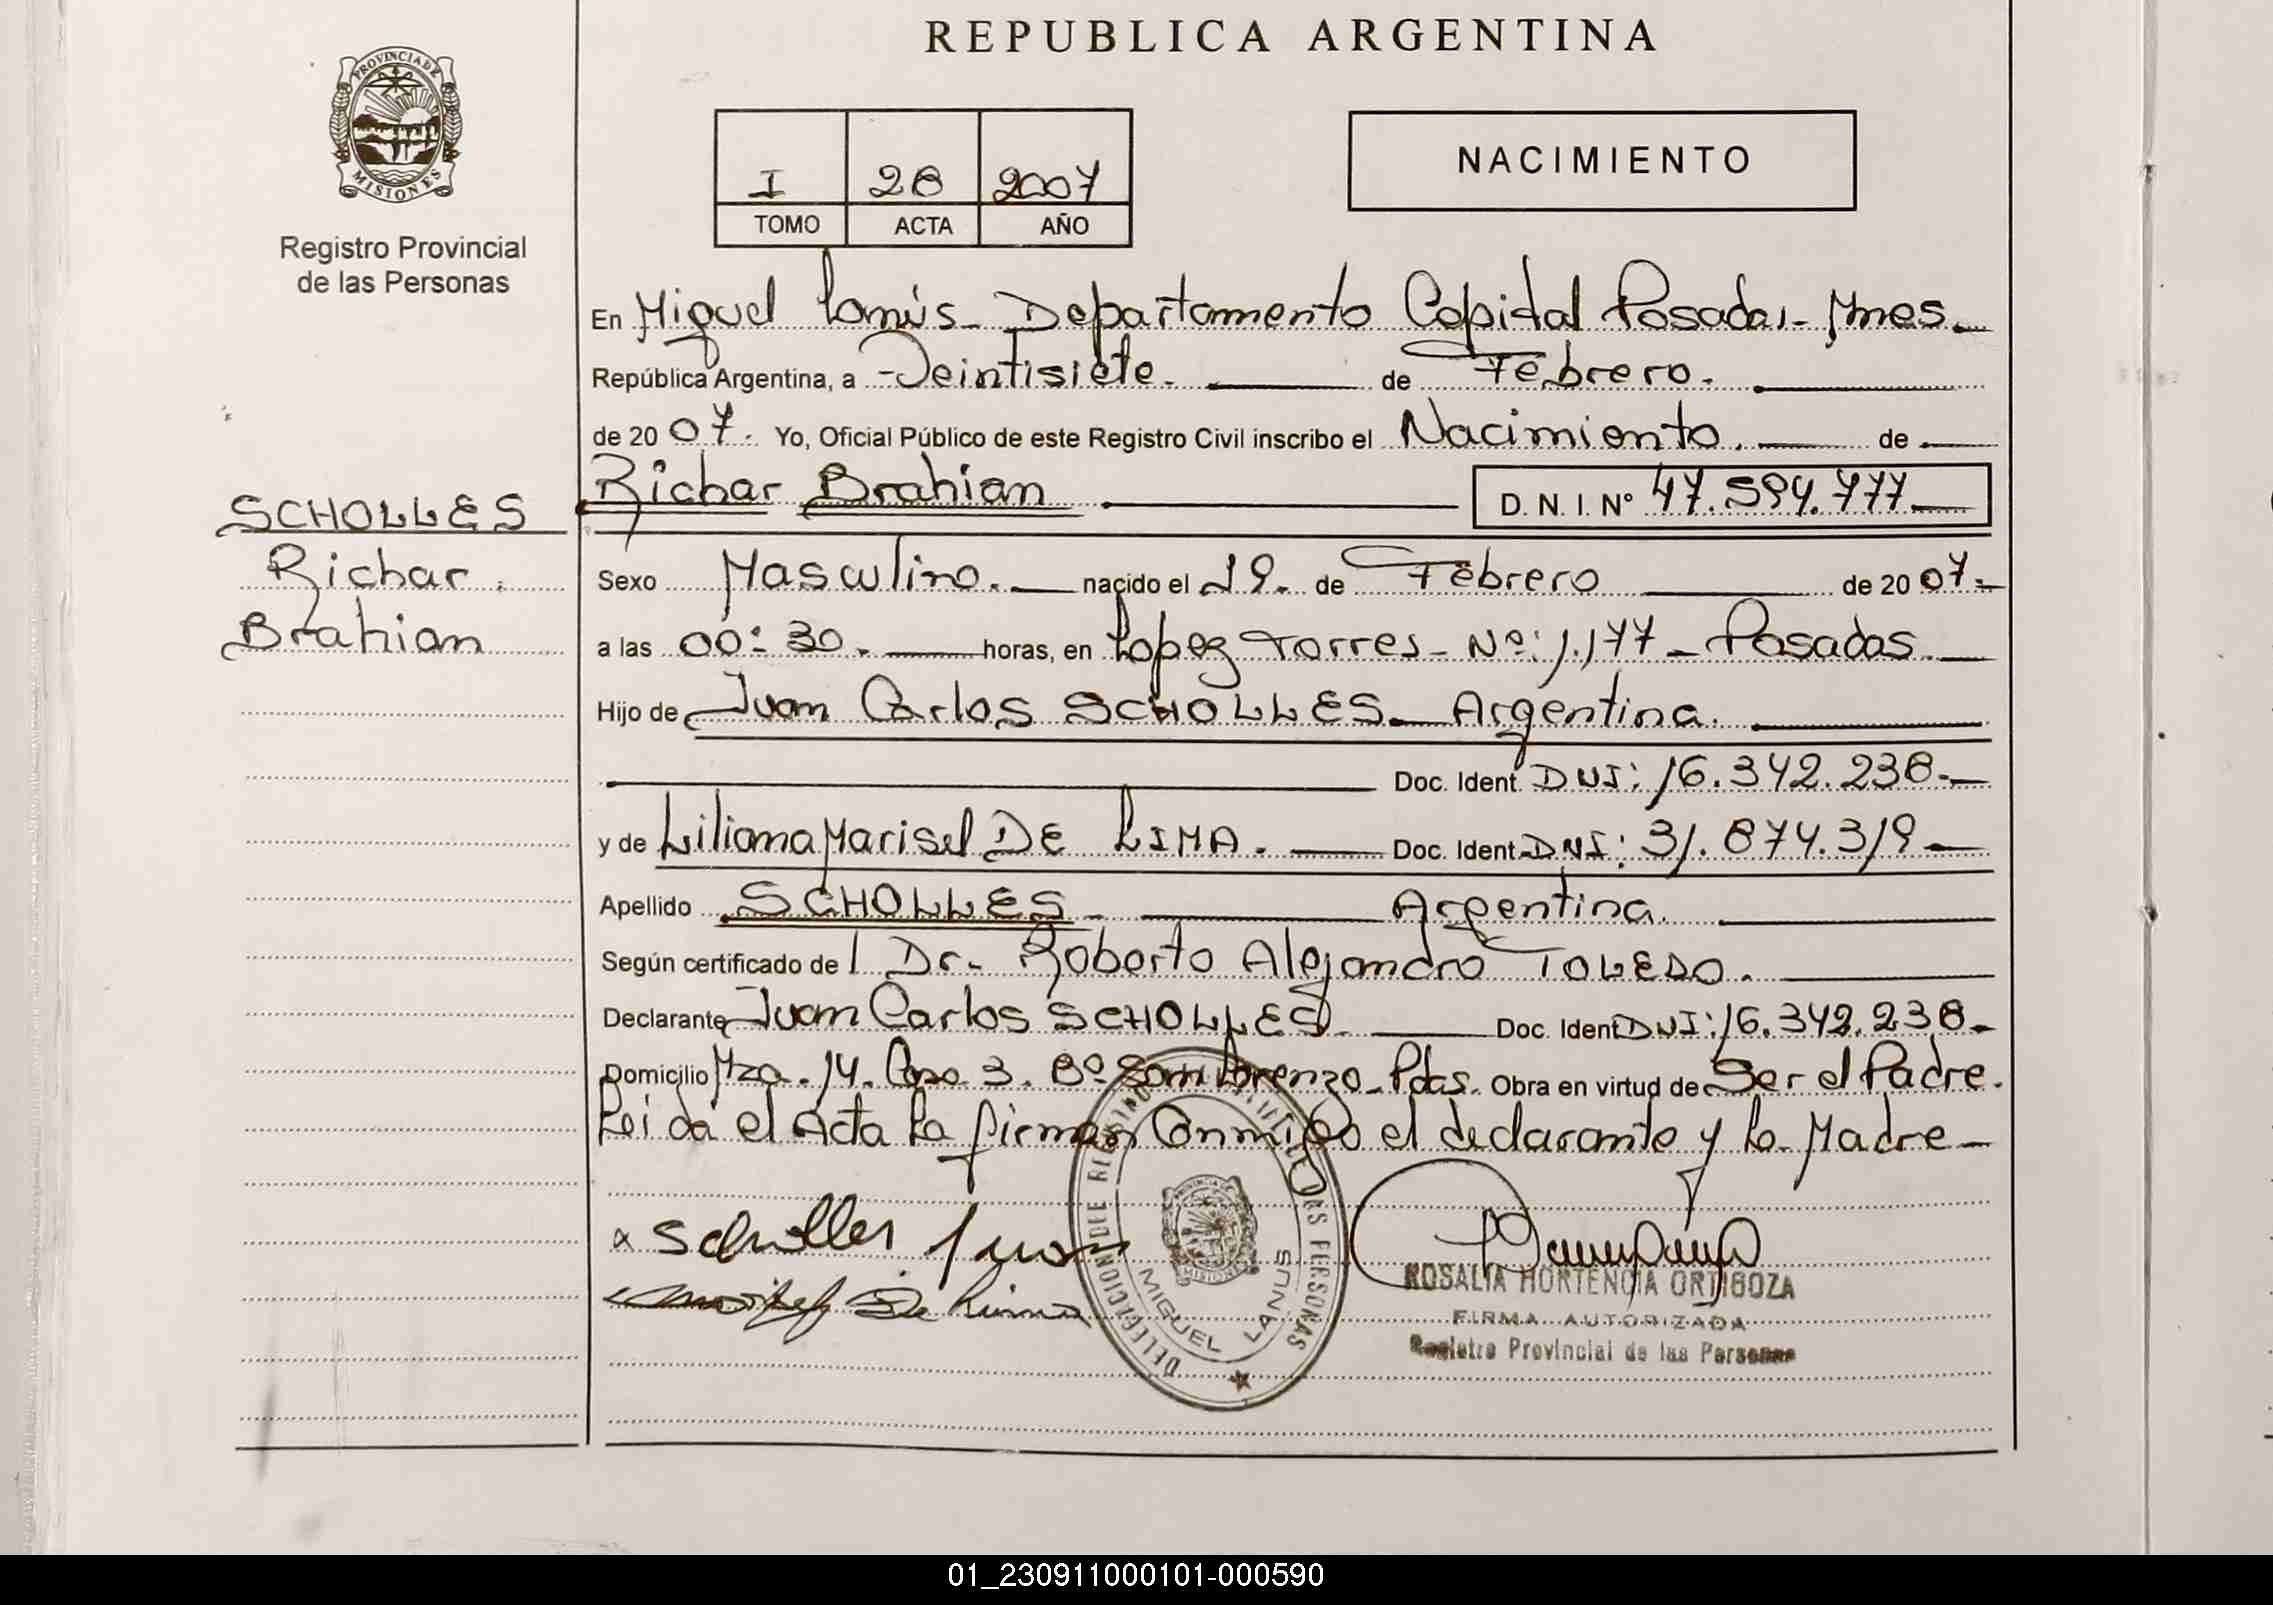 REPUBLICA ARGENTINA
PROVINCIA DE
MISIONES
Registro Provincial
de las Personas
I 28 2007
TOMO ACTA AÑO
NACIMIENTO
En Miguel Lanús - Departamento Capital Posadas - Mnes.
República Argentina, a Veintisiete. de Febrero.
de 2007. Yo, Oficial Público de este Registro Civil inscribo el Nacimiento. de
Richar Brahian D. N. I. N° 47.594.777
SCHOLLES
Richar
Brahian
Sexo Masculino. nacido el 19. de Febrero de 2007.
a las 00:30. horas, en Lopez Torres - Nº: 1.177 - Posadas.
Hijo de Juan Carlos SCHOLLES - Argentina.
Doc. Ident. DNI: 16.342.238.
y de Liliana Marisel DE LIMA. Doc. Ident. DNI: 31.874.319
Apellido SCHOLLES - Argentina.
Según certificado del Dr. Roberto Alejandro TOLEDO.
Declarante Juan Carlos SCHOLLES. Doc. Ident DNI: 16.342.238.
Domicilio Mza. 14. Casa 3. Bº San Lorenzo - Pdas. Obra en virtud de Ser el Padre.
Leida el Acta la firman Conmigo el declarante y la Madre
Scholles Juan
De Lima
DELEGACION DE REGISTRO PROVINCIAL DE LAS PERSONAS
PROVINCIA DE
MISIONES
MIGUEL LANUS
ROSALIA HORTENCIA ORTIGOZA
FIRMA AUTORIZADA
Registro Provincial de las Personas
01_230911000101-000590